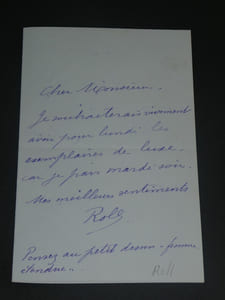 Cher Monsieur.
Je souhaiterais vivement
avoir pour lundi les
exemplaires de luxe.
car je pars mardi soir.
Mes meilleurs sentiments
Roll
Pensez au petit dessin - femme
étendue.
Roll